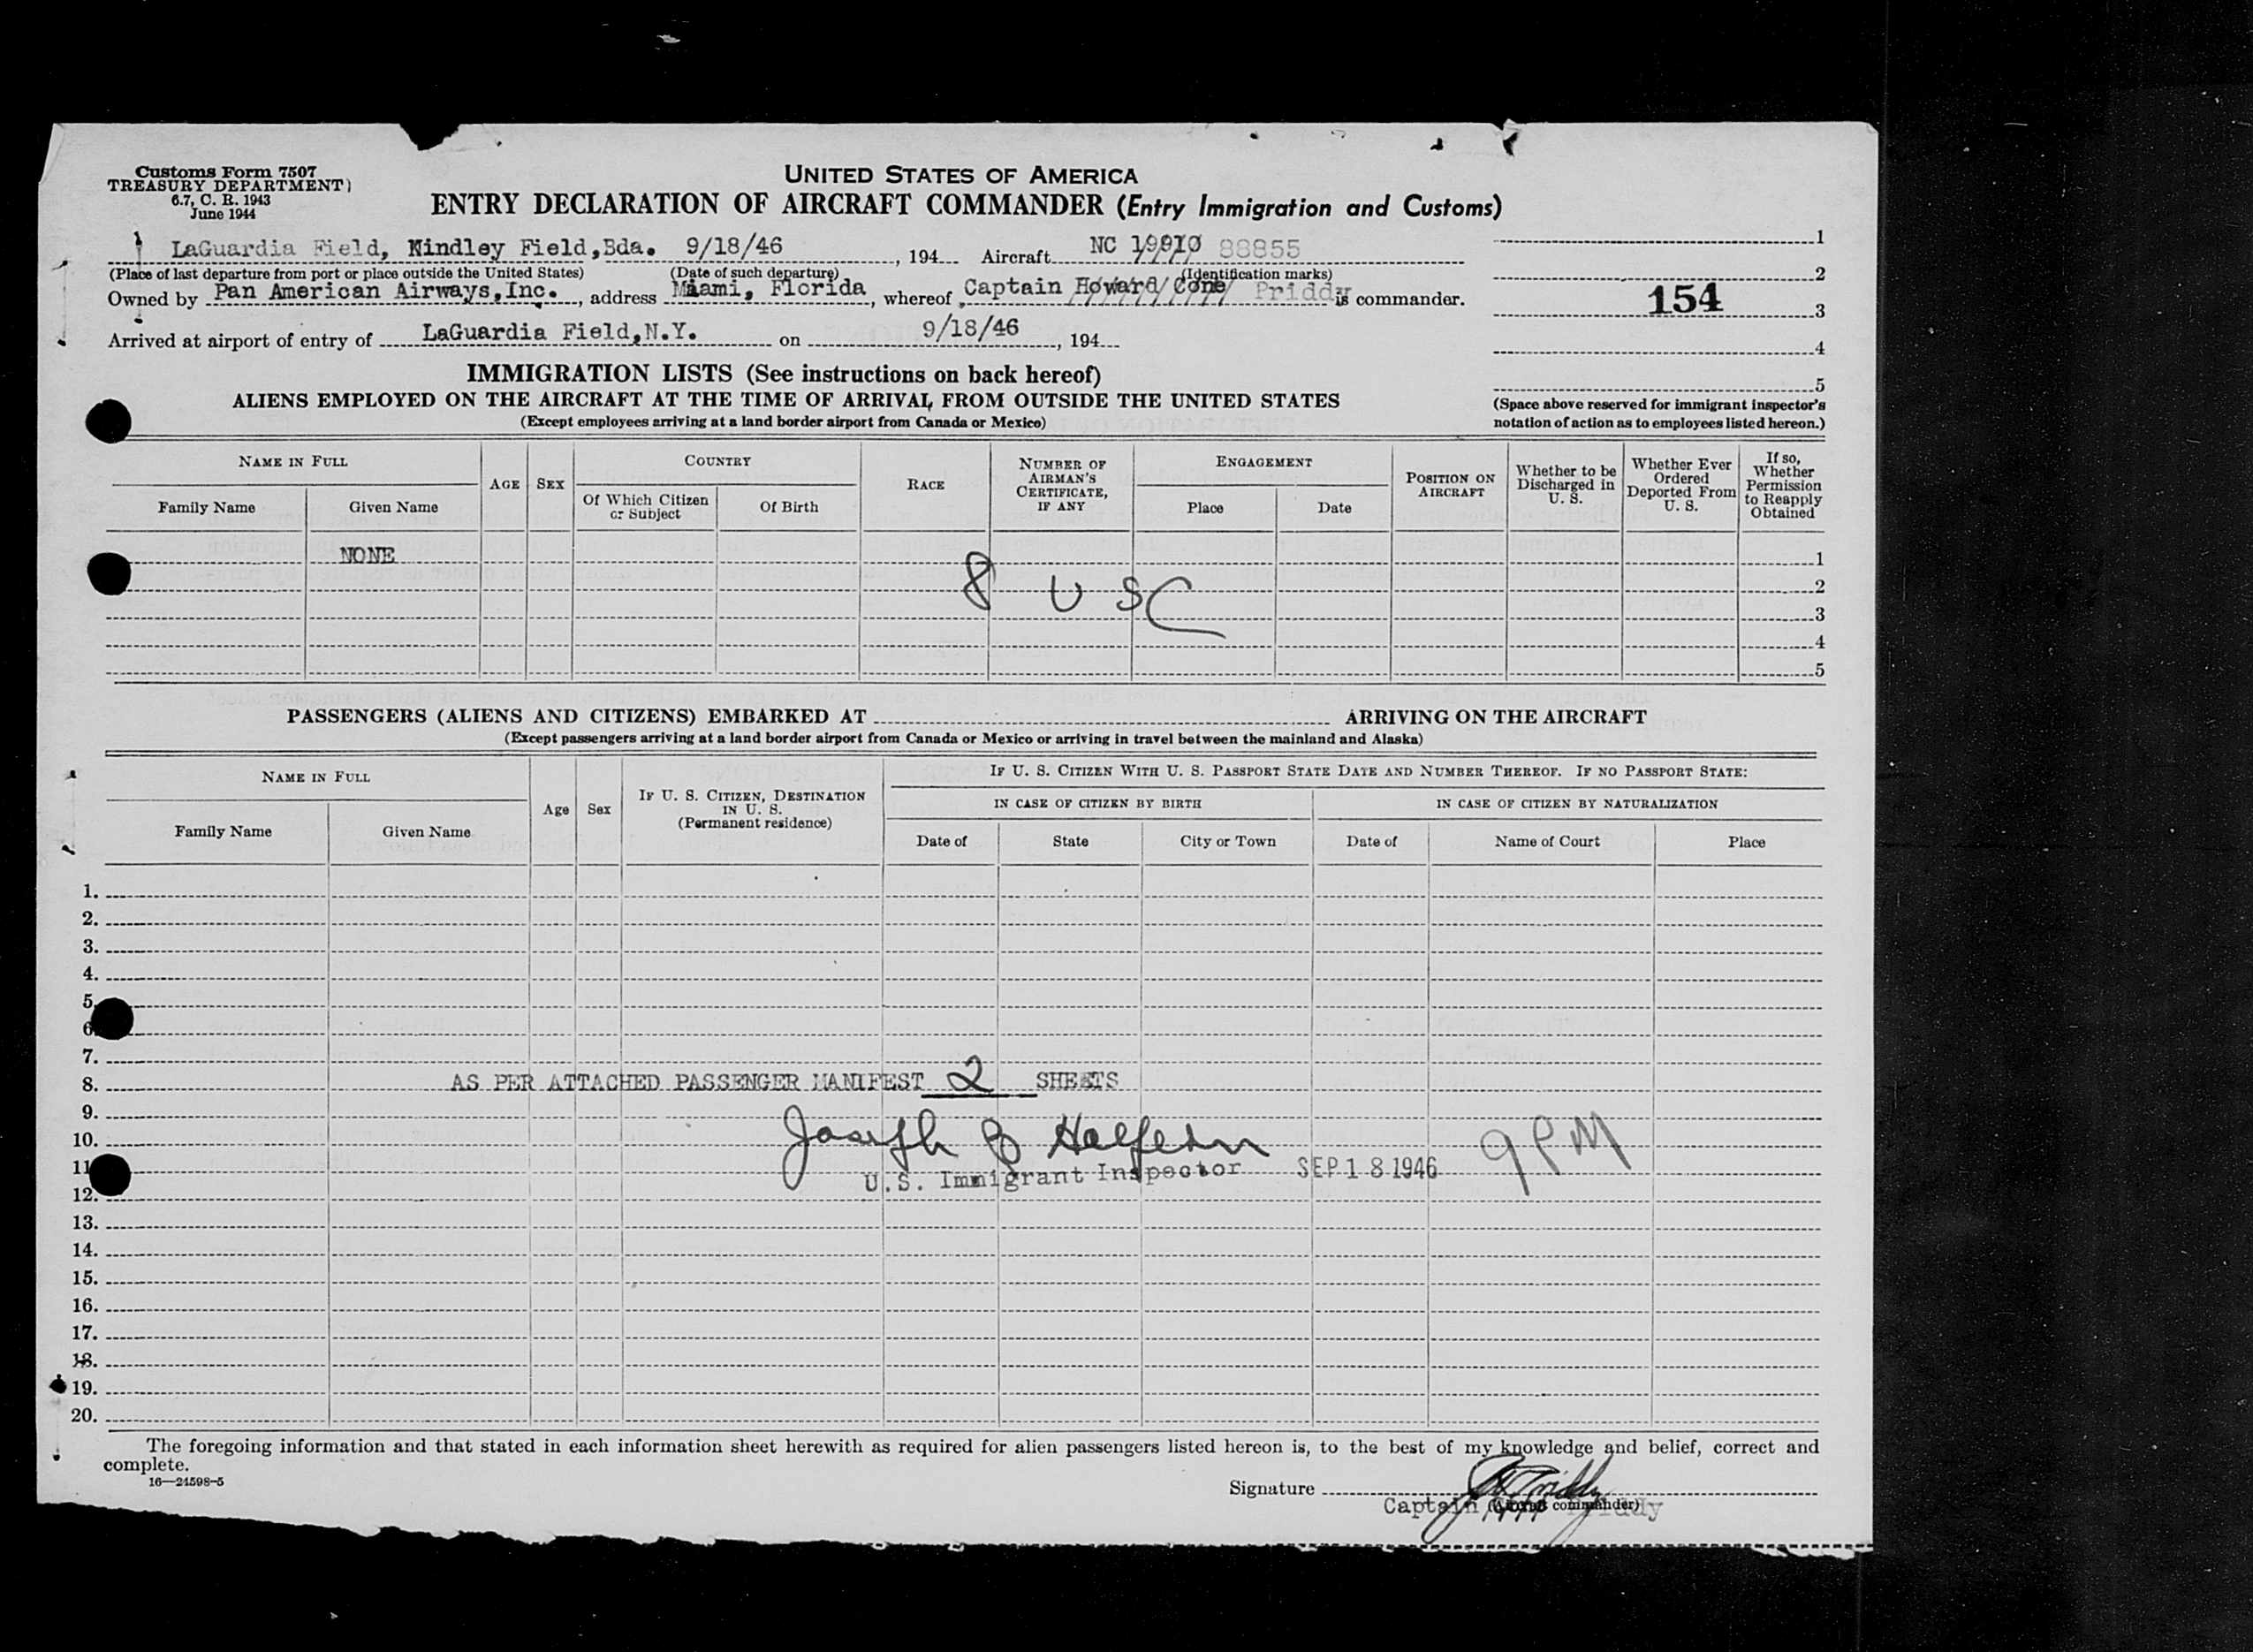 Customs Form 7507
TREASURY DEPARTMENT)
6.7, C. R. 1943
June 1944
UNITED STATES OF AMERICA
ENTRY DECLARATION OF AIRCRAFT COMMANDER (Entry Immigration and Customs)
LaGuardia Field, Kindley Field,Bda. 9/18/46, 194 Aircraft NC 19910 88855
(Place of last departure from port or place outside the United States) (Date of such departure) (Identification marks)
Owned by Pan American Airways,Inc., address Miami, Florida, whereof Captain Howard Cone Priddy is commander.
Arrived at airport of entry of LaGuardia Field,N.Y. on 9/18/46, 194
1
2
154 3
4
5
(Space above reserved for immigrant inspector's
notation of action as to employees listed hereon.)
IMMIGRATION LISTS (See instructions on back hereof)
ALIENS EMPLOYED ON THE AIRCRAFT AT THE TIME OF ARRIVAL FROM OUTSIDE THE UNITED STATES
(Except employees arriving at a land border airport from Canada or Mexico)
NAME IN FULL
Family Name Given Name
AGE
SEX
COUNTRY
Of Which Citizen or Subject
Of Birth
RACE
NUMBER OF AIRMAN'S CERTIFICATE, IF ANY
ENGAGEMENT
Place Date
POSITION ON AIRCRAFT
Whether to be Discharged in U. S.
Whether Ever Ordered Deported From U. S.
If so, Whether Permission to Reapply Obtained
NONE 1
8 U S C 2
3
4
5
PASSENGERS (ALIENS AND CITIZENS) EMBARKED AT ARRIVING ON THE AIRCRAFT
(Except passengers arriving at a land border airport from Canada or Mexico or arriving in travel between the mainland and Alaska)
NAME IN FULL
Family Name Given Name
Age
Sex
IF U. S. CITIZEN, DESTINATION IN U. S.
(Permanent residence)
IF U. S. CITIZEN WITH U. S. PASSPORT STATE DATE AND NUMBER THEREOF. IF NO PASSPORT STATE:
IN CASE OF CITIZEN BY BIRTH
Date of State City or Town
IN CASE OF CITIZEN BY NATURALIZATION
Date of Name of Court Place
1.
2.
3.
4.
5.
6.
7.
8. AS PER ATTACHED PASSENGER MANIFEST 2 SHEETS
9.
10. Joseph B Halfern 9 PM
11 U.S. Immigrant Inspector SEP 18 1946
12.
13.
14.
15.
16.
17.
18.
19.
20.
The foregoing information and that stated in each information sheet herewith as required for alien passengers listed hereon is, to the best of my knowledge and belief, correct and
complete.
16—24598-5
Signature Priddy
Captain Cone Priddy
(Aircraft commander)